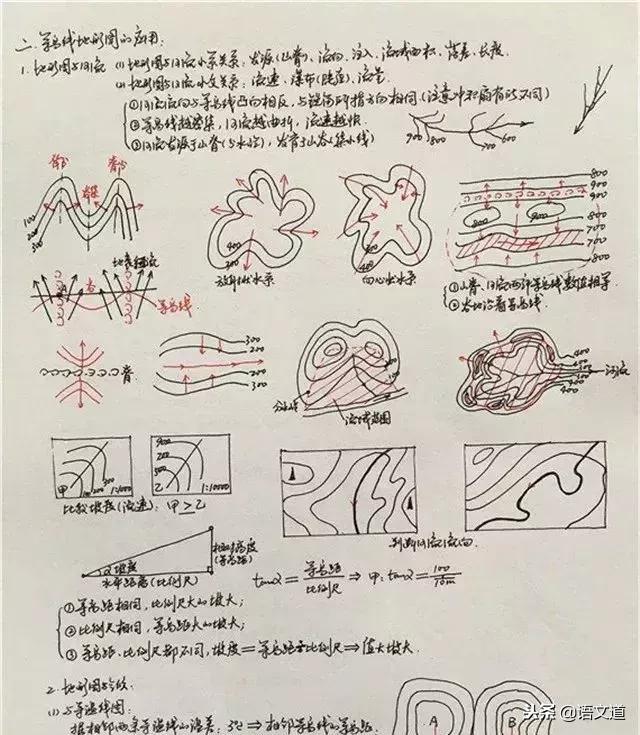 二.等高线地形图的应用.
1. 地形图与河流 (1) 地形图与河流水系关系:发源(山脊)、流向、注入、流域面积、落差、长度.
(2) 地形图与河流水文关系:流速、瀑布(陡崖)、流量
①河流流向与等高线凸向相反,与
所指方向相同(注意冲积扇有所不同)
②等高线越密集,河流越曲折,流速越快.
③河流发源于山脊(分水岭),发育于山谷(集水线)
900 800 700 600
脊 谷 脊
100
200
300
放射状水系
向心状水系
400
800
900
900
800
700
700
800
①山脊、河流两部等高线数值相等
②谷地沿着等高线.
谷
等高线
脊
300
200
200
300
分水线
流域范围
400
400
河流
甲 100 200 300 1:10000
400
300
乙 1:10000
比较坡度(流速):甲≥乙
判断河流流向.
相对高度
(等高距)
α坡度
水平距离(比例尺)
tanα = 等高距/比例尺 ⇒ 甲:tanα = 100/10m
①等高距相同,比例尺大的坡大;
②比例尺相同,等高距大的坡大;
③等高距、比例尺都不同,坡度=等高距÷比例尺⇒值大坡大.
2. 地形图与气候
(1) 与等温线图:
据相邻两条等温线的温差:3℃ ⇒ 相邻等高线的等高距
A B
头条 @语文道